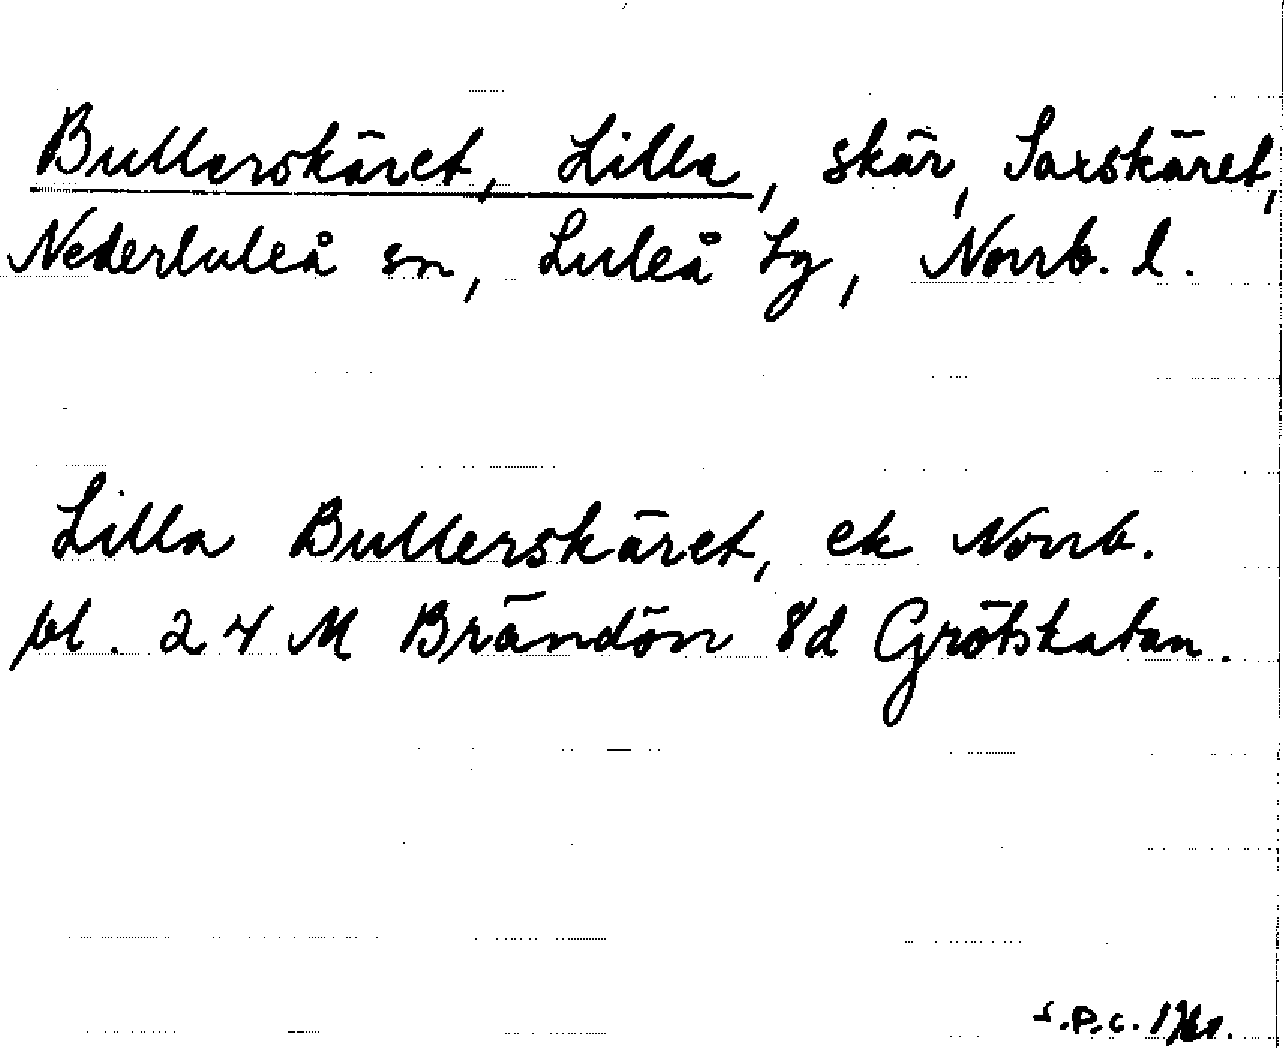 Bullerskäret, Lilla, skär, Saxskäret,
Nederluleå sn, Luleå tg, Norrb. l.
Lilla Bullerskäret, ek Norrb.
bl. 24 M Brändön 8d Grötskatan.